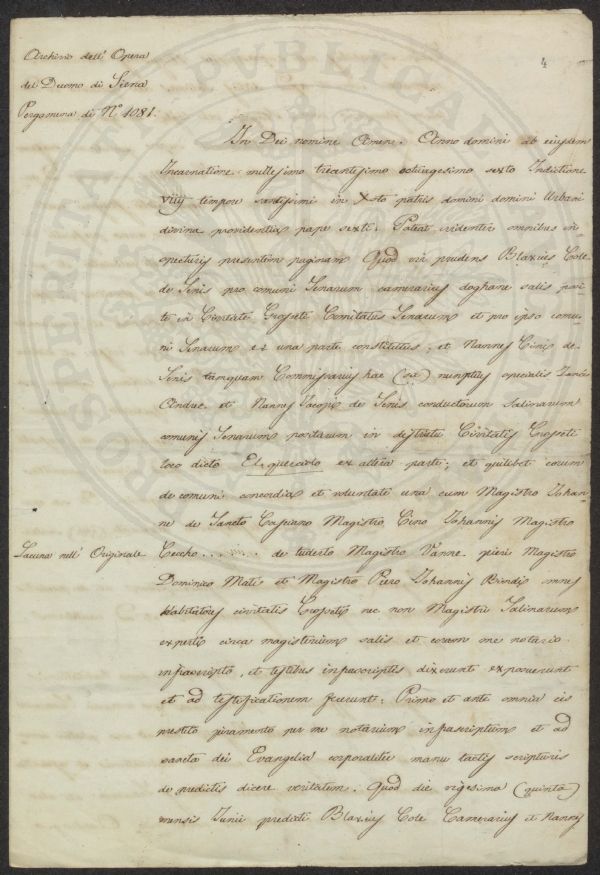 Archivio dell' Opera
del Duomo di Siena
Pergamena di N.º 1081.
4
In Dei nomine Amen. Anno domini ab eiusdem
Incarnatione millesimo trecentesimo octuagesimo sexto Indictione
VIIIj tempore santissimi in X-to patris domini domini Urbani
divina providentia pape sexti. Pateat evidenter omnibus in=
specturis presentem paginam Quod vir prudens Blaxius Cole
de Senis pro comuni Senarum camerarius doghane salis posi=
te in Civitate Grosseti Comitatus Senarum et pro ipso comu=
ni Senarum ex una parte constitutus; et Nannes Cini de
Senis tamquam Commissarius hac (sic) numptius specialis
Andree et Nannes Jacopi de Senis conductorum Salinarum
comunis Senarum positarum in districtu Civitatis Grosseti
loco dicto El querciolo ex altera parte; et quilibet eorum
de comuni concordia et voluntate una cum Magistro Johan=
ne de Sancto Casciano Magistro Cino Johannis Magistro
Lacuna nell' Originale
Ceccho ........ de tuderto Magistro Vanne pieri Magistro
Dominico Mati et Magistro Piero Johannis Biondi omnes
habitatores civitatis Grosseti nec non Magistri Salinarum
experti circa magisterium salis et coram me notario
infrascripto, et testibus infrascriptis dixerunt exposuerunt
et ad testificationem fecerunt. Primo et ante omnia eis
prestito juramento per me notarium infrascriptum et ad
sancta dei Evangelia corporaliter manu tactis scripturis
de predictis dicere veritatem. Quod die vigesima (quinta)
mensis Junii predicti Blaxius Cole Camerarius et Nannes
PROSPERITATI PUBLICAE